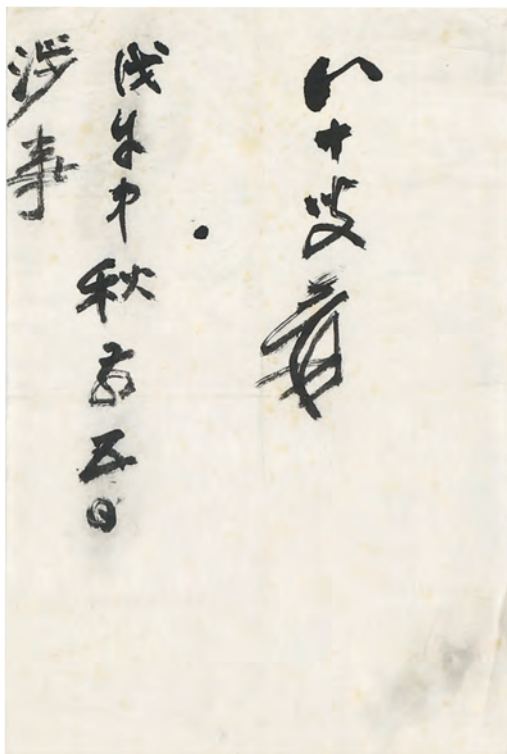 八十叟爰
戊午中秋前五日
涉事